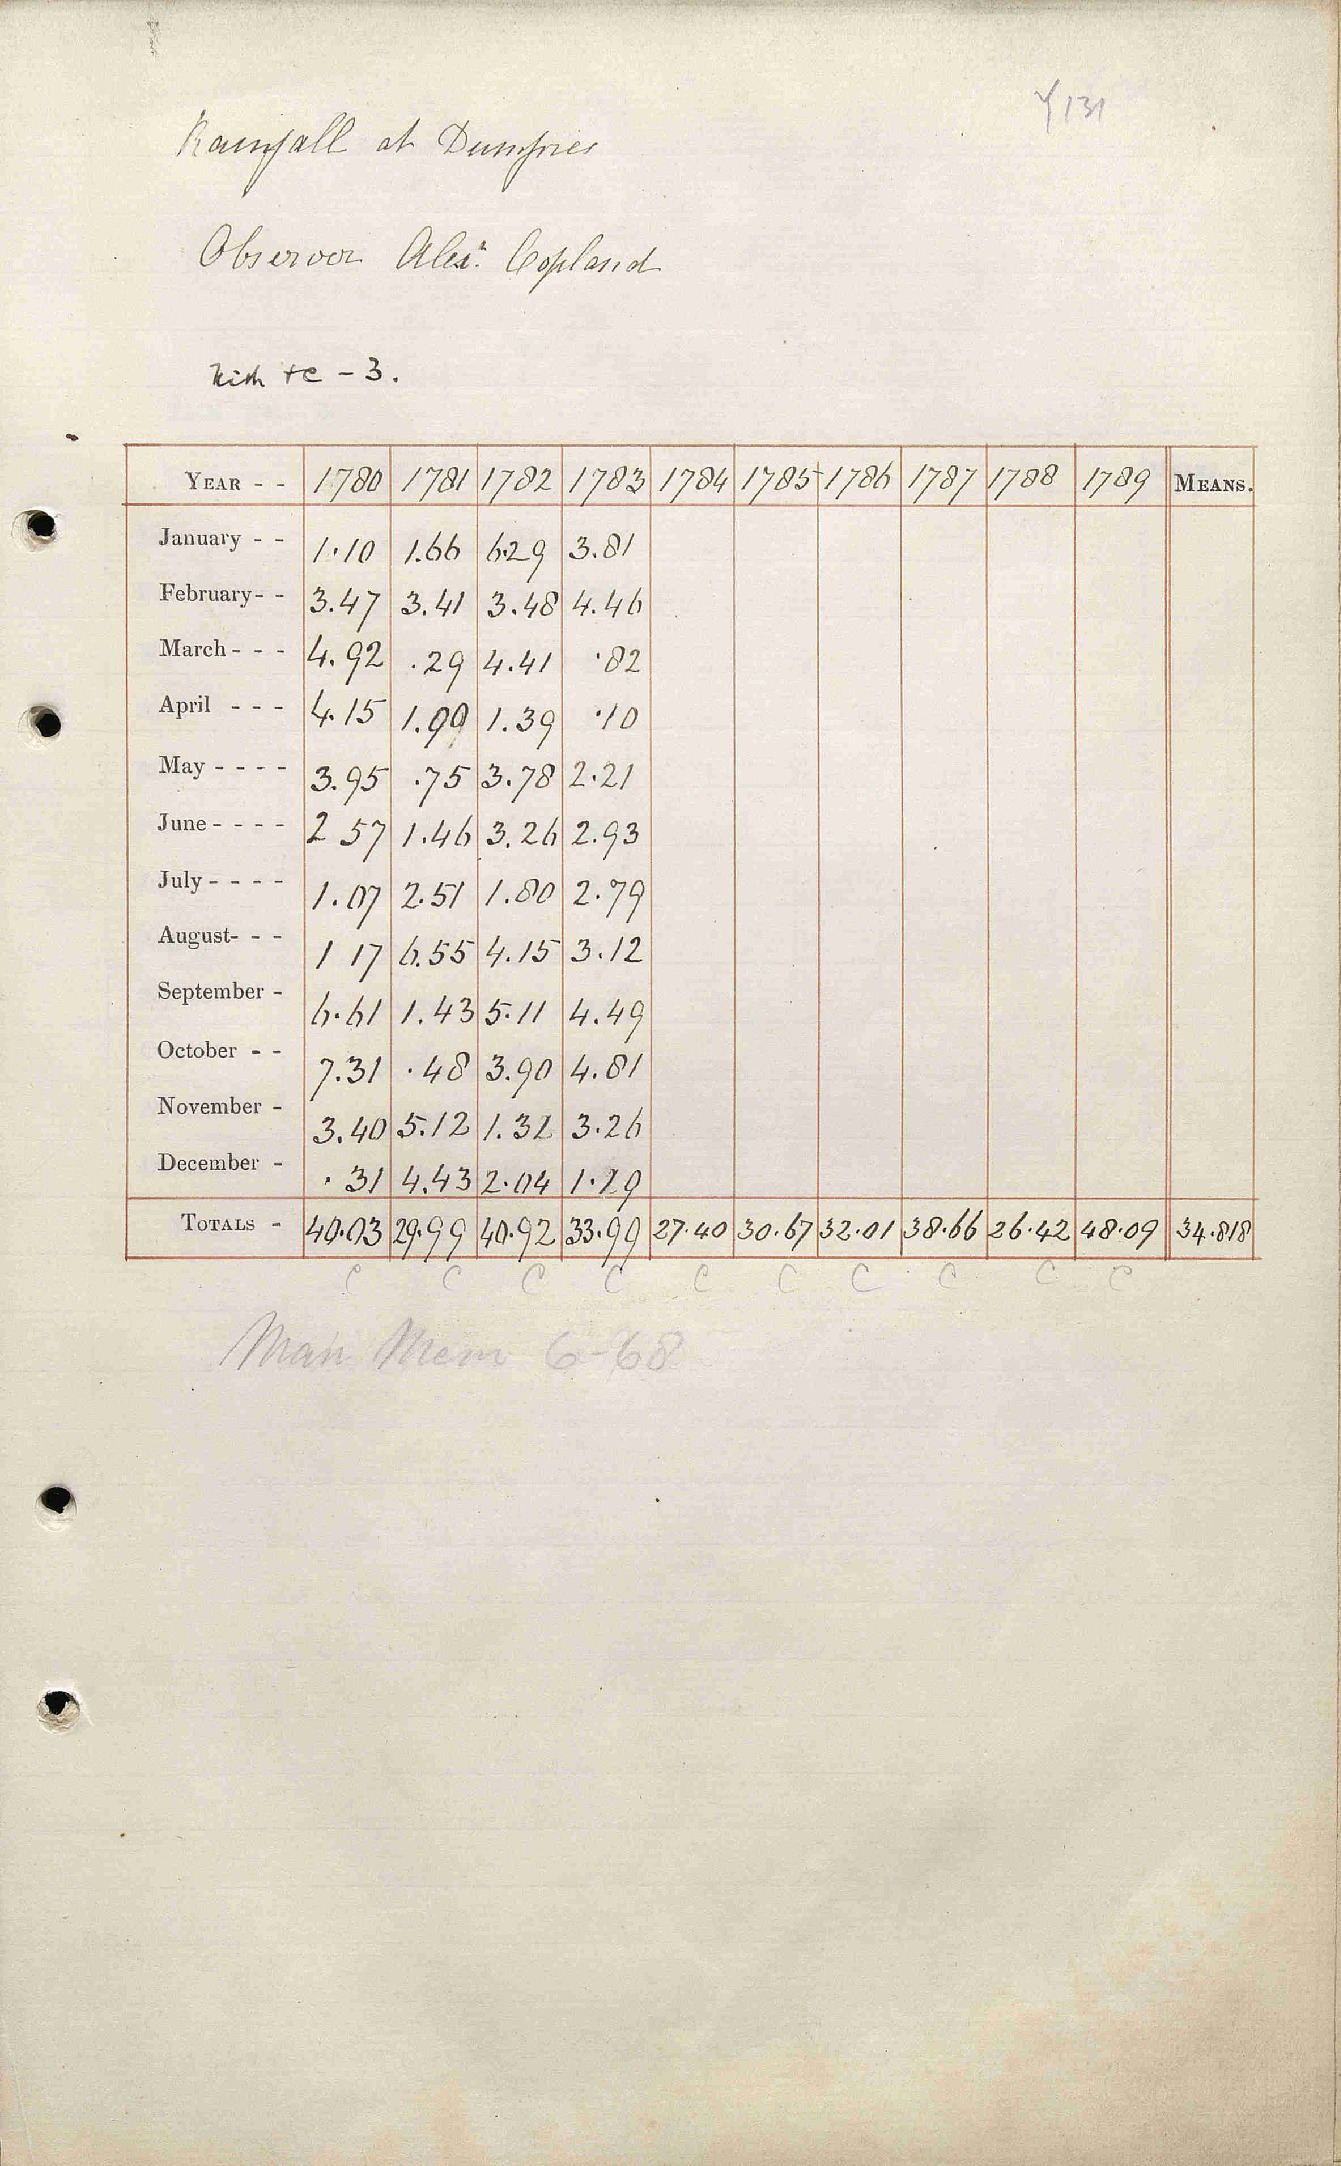 Y131
Rainfall at Dumfries
Observer Alexr. Copland
Nith +c - 3.
YEAR - - 1780 1781 1782 1783 1784 1785 1786 1787 1788 1789 MEANS.
January - - 1.10 1.66 6.29 3.81
February - - 3.47 3.41 3.48 4.46
March - - - 4.92 .29 4.41 .82
April - - - 4.15 1.90 1.39 .10
May - - - - 3.95 .75 3.78 2.21
June - - - - 2 57 1.46 3.26 2.93
July - - - - 1.07 2.51 1.80 2.79
August - - - 1 17 6.55 4.15 3.12
September - 6.61 1.43 5.11 4.49
October - - 7.31 .48 3.90 4.81
November - 3.40 5.12 1.32 3.26
December - .31 4.43 2.04 1.19
TOTALS - 40.03 29.99 40.92 33.99 27.40 30.67 32.01 38.66 26.42 48.09 34.818
C C C C C C C C C C
Man Mem 6-68